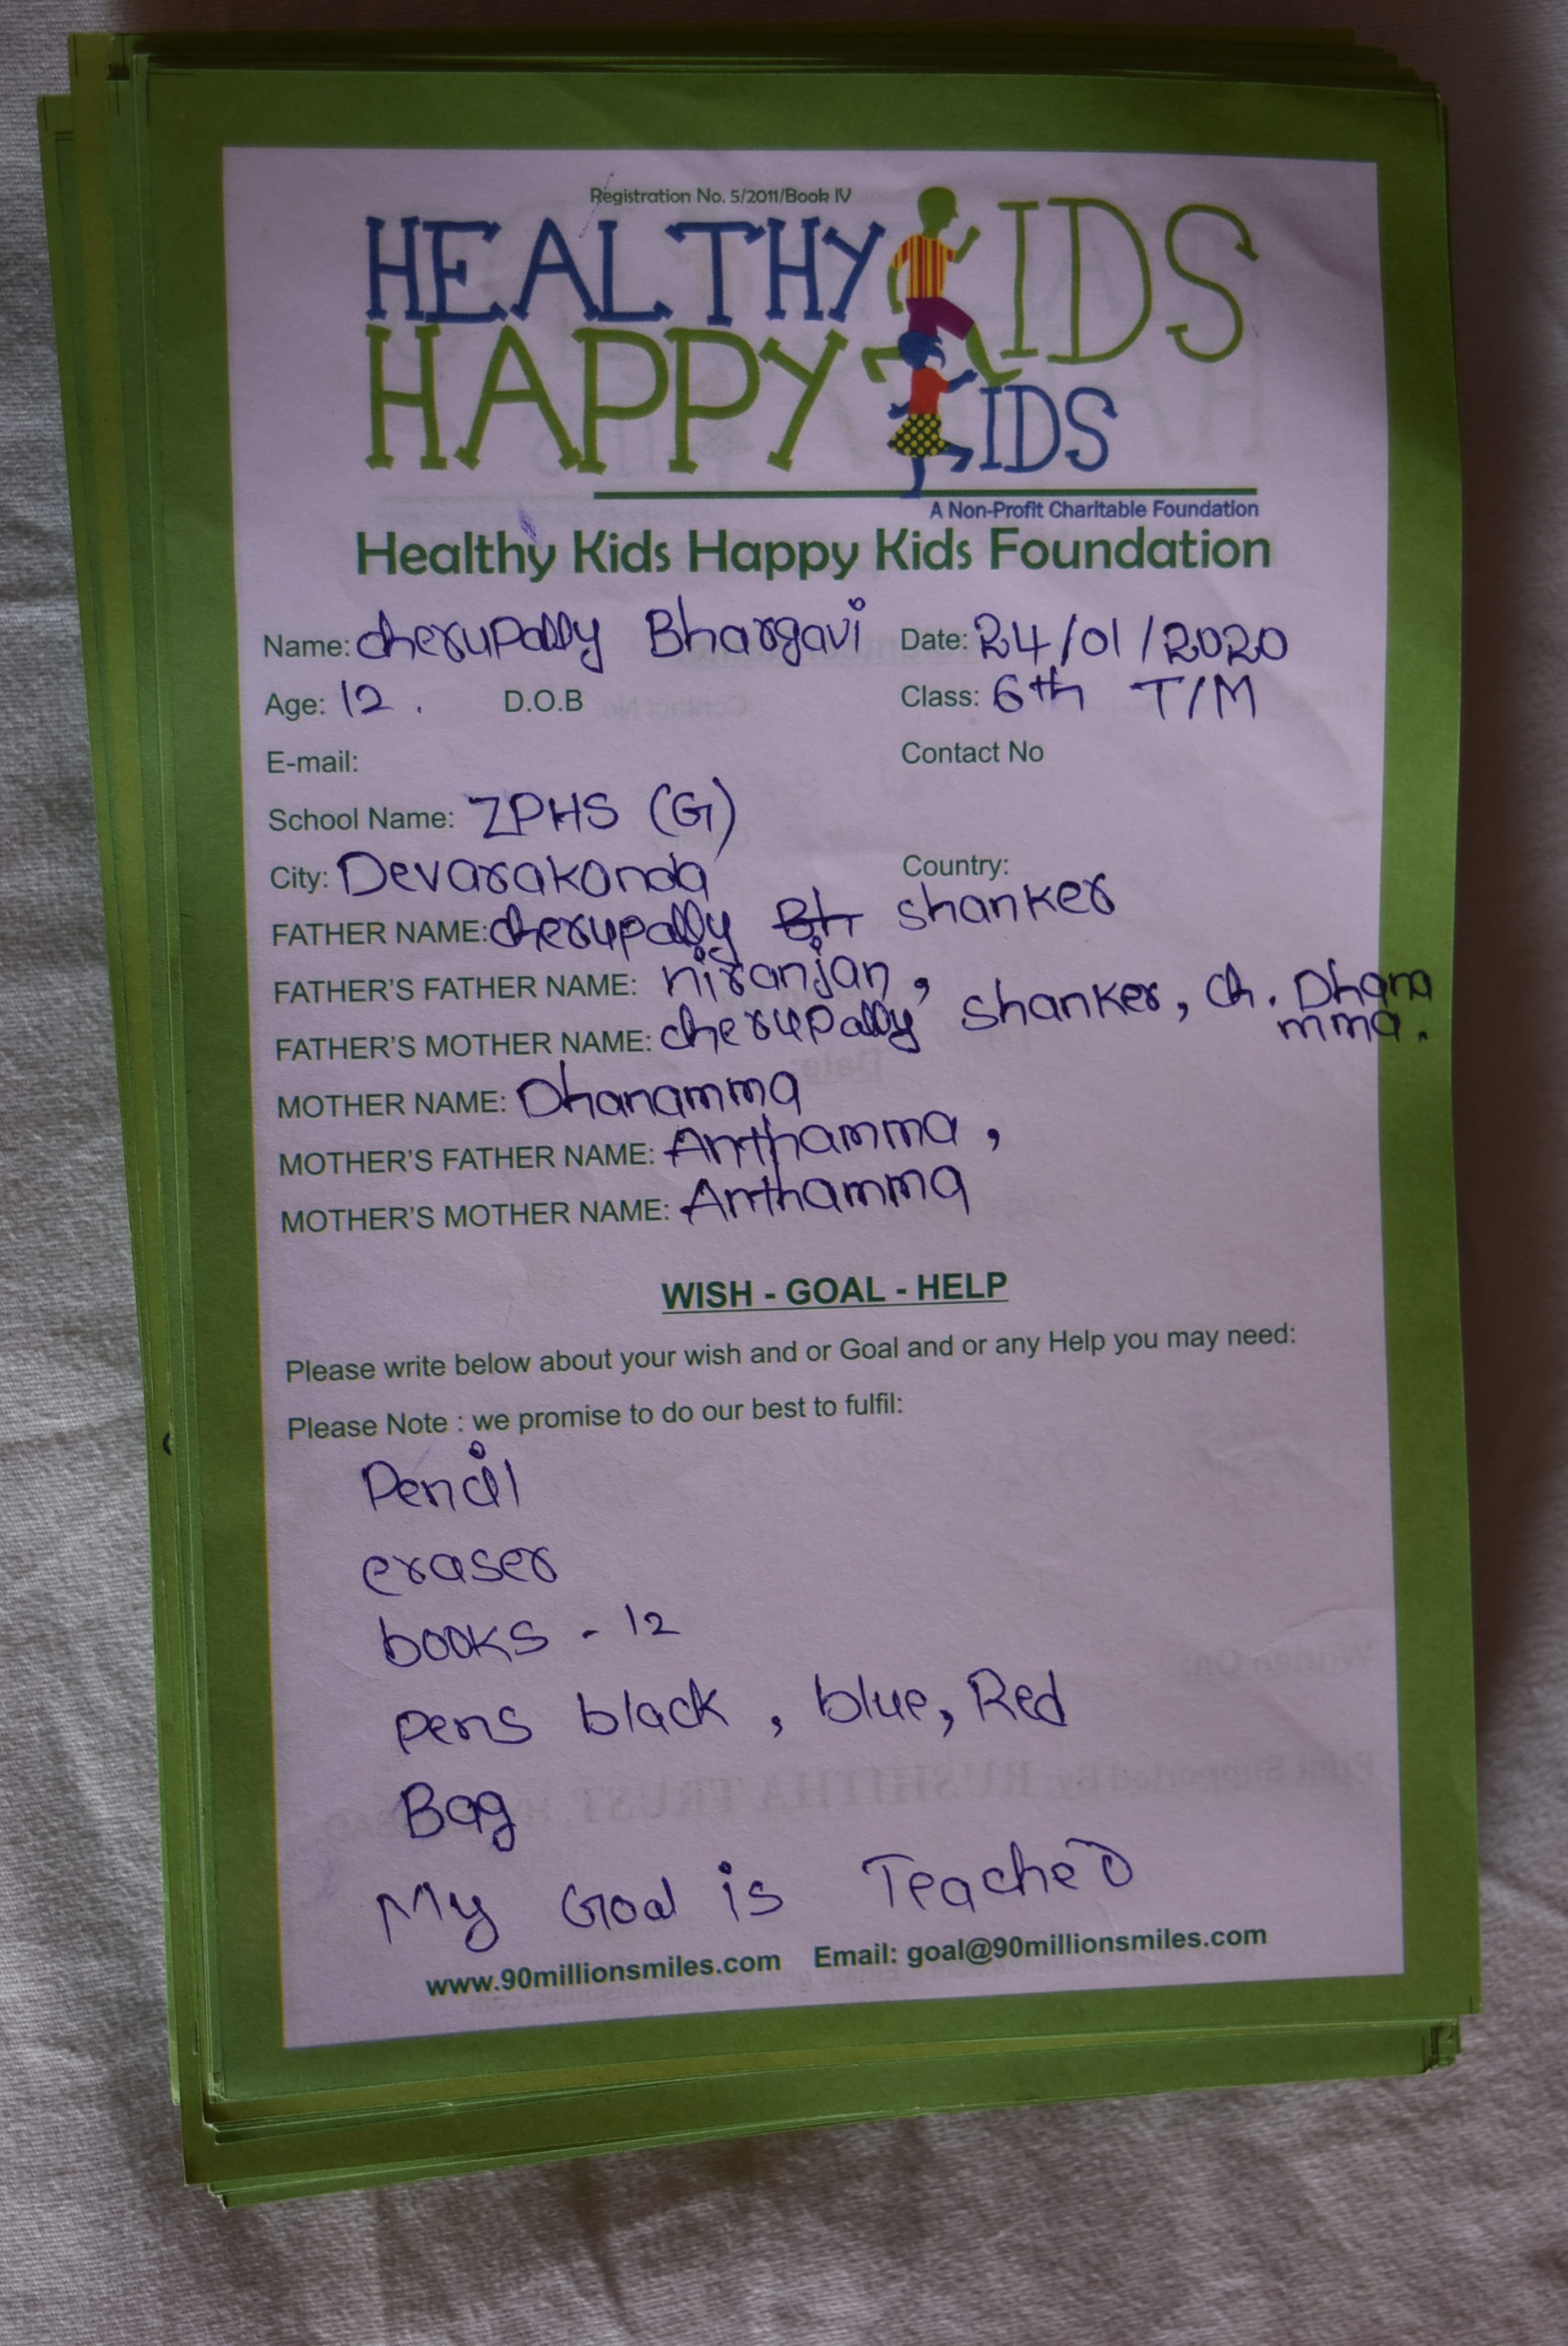 Registration No. 5/2011/Book IV
HEALTHY KIDS
HAPPY KIDS
A Non-Profit Charitable Foundation
Healthy Kids Happy Kids Foundation
Name: cherupally Bhargavi Date: 24/01/2020
Age: 12. D.O.B Class: 6th T/M
E-mail: Contact No
School Name: ZPHS (G)
City: Devarakonda Country:
FATHER NAME: cherupally Bh shanker
FATHER'S FATHER NAME: niranjan,
FATHER'S MOTHER NAME: cherupally shanker, ch. Dhana
mma.
MOTHER NAME: Dhanamma
MOTHER'S FATHER NAME: Anthamma,
MOTHER'S MOTHER NAME: Anthamma
WISH - GOAL - HELP
Please write below about your wish and or Goal and or any Help you may need:
Please Note : we promise to do our best to fulfil:
Pencil
eraser
books - 12
pens black, blue, Red
Bag
My Goal is Teacher
www.90millionsmiles.com Email: goal@90millionsmiles.com